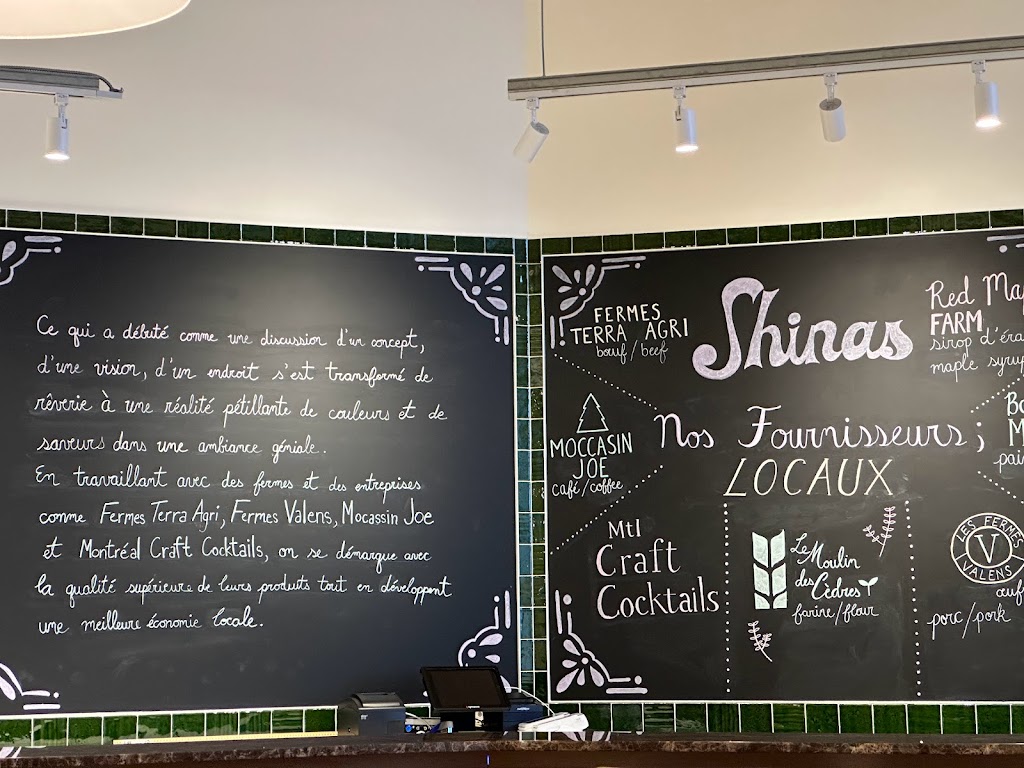 Ce qui a débuté comme une discussion d'un concept,
d'une vision, d'un endroit s'est transformé de
rêverie à une réalité pétillante de couleurs et de
saveurs dans une ambiance géniale.
En travaillant avec des fermes et des entreprises
comme Fermes Terra Agri, Fermes Valens, Mocassin Joe
et Montréal Craft Cocktails, on se démarque avec
la qualité supérieure de leurs produits tout en développent
une meilleure économie locale.
FERMES
TERRA AGRI
bœuf/beef
Shinas
Red Ma
FARM
sirop d'éra
maple syru
MOCCASIN
JOE
café/coffee
Nos Fournisseurs;
LOCAUX
Mtl
Craft
Cocktails
Le Moulin
des Cèdres
farine/flour
LES FERMES
V
VALENS
œuf
porc/pork